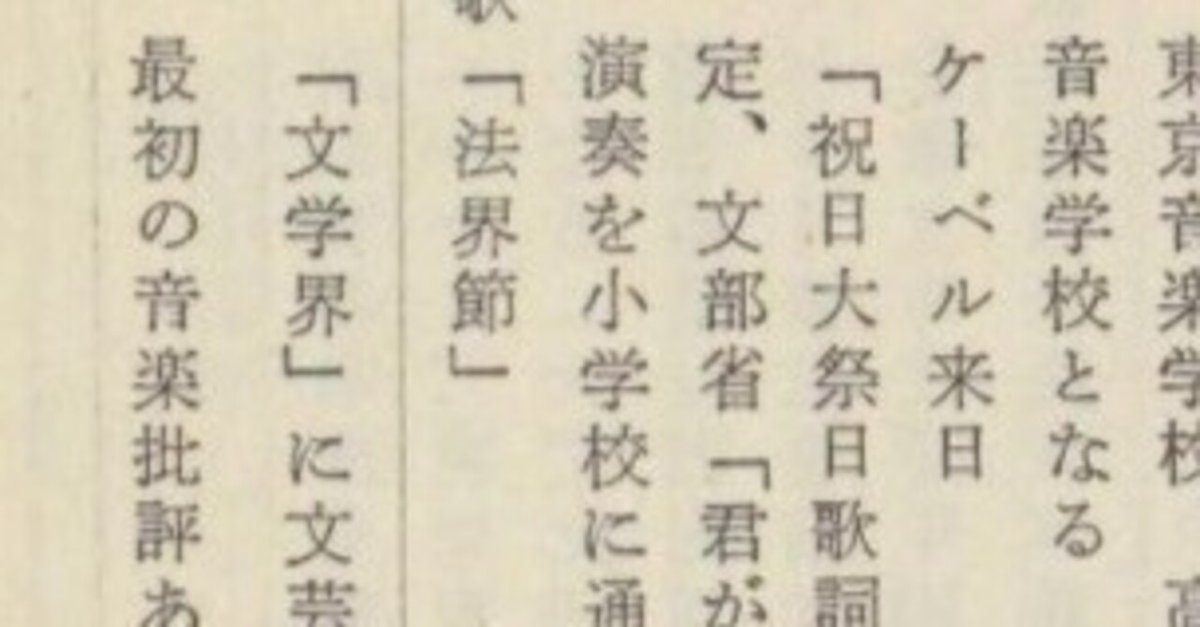 東京音楽学校 高
音楽学校となる
ケーベル来日
「祝日大祭日歌詞
定、文部省「君が
演奏を小学校に通
歌「法界節」
「文学界」に文芸
最初の音楽批評あ